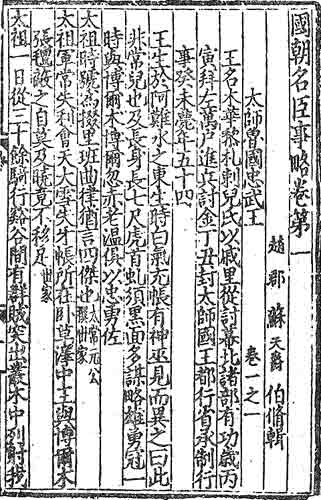 國朝名臣事略卷第一
趙郡蘇天爵伯脩輯
太師魯國忠武王 卷一之一
王名木華黎札剌兒氏以戚里從討幕北諸部有功歲丙
寅拜左萬戶進兵討金丁丑封太師國王都行省承制行
事癸未薨年五十四
王生於阿難水之東生時白氣充帳有神巫見而異之曰此
非常兒也及長身長七尺虎首虬須黑面多謀略雄勇冠一
時與博爾朮博爾忽赤老溫俱以忠勇佐
太祖時號為掇里班曲律猶言四傑也太常元公撰世家
太祖軍常失利會天大雪失牙帳所在臥草澤中王與博爾朮
張氊蔽之自莫及曉竟不移足世家
太祖一日從三十餘騎行谿谷間有群賊突出叢木中列射我